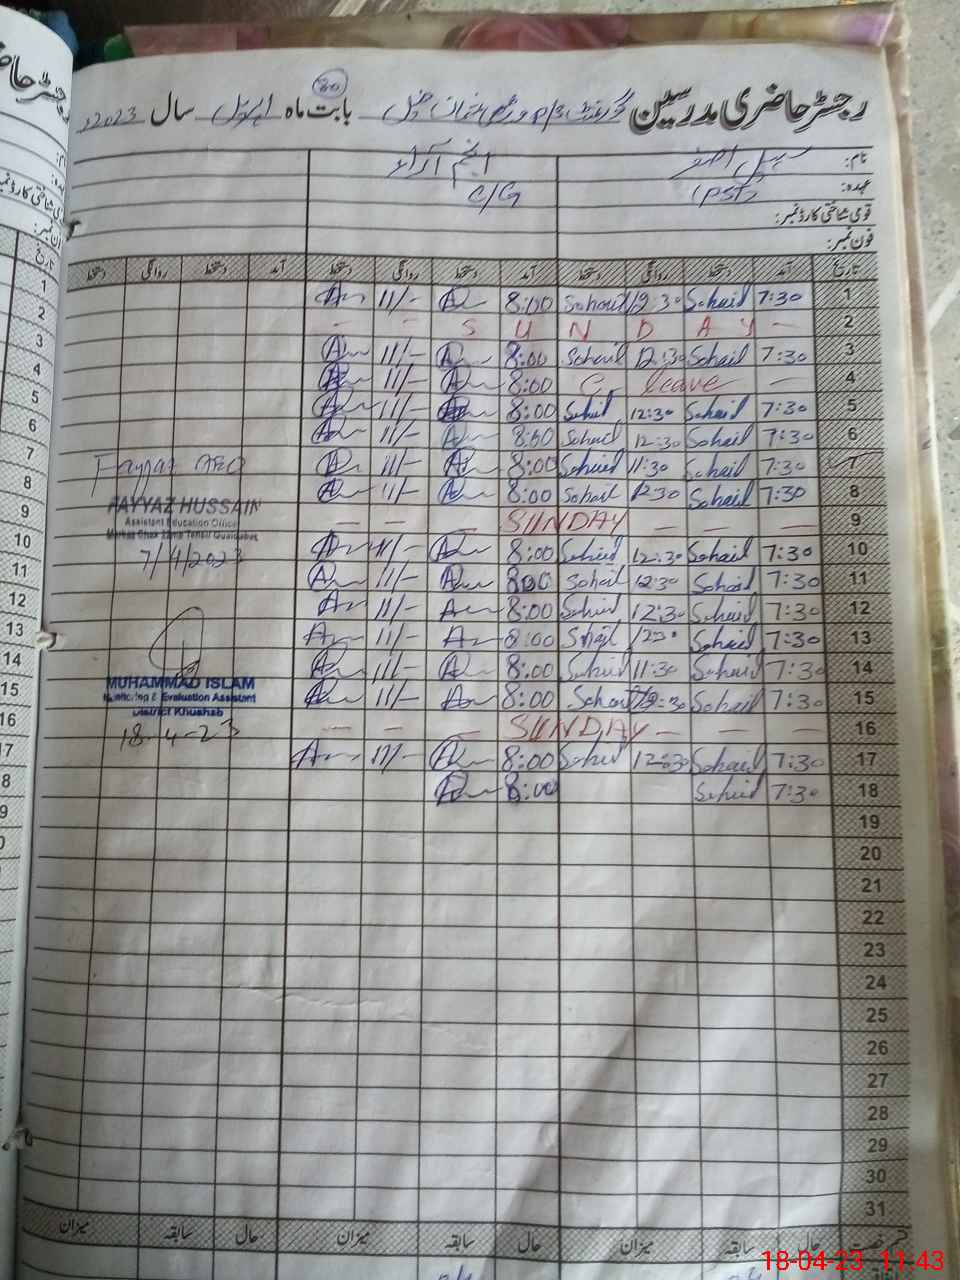 رجسٹر حاضری مدرسین گورنمنٹ بابت ماہ اپریل سال 2023
30
نام: سہیل اصغر انجم آراء
عہدہ: (PST) C/G
قومی شناختی کارڈ نمبر:
فون نمبر:
تاریخ آمد دستخط روانگی دستخط آمد دستخط روانگی دستخط آمد دستخط روانگی دستخط
1 7:30 Sohail 12:30 Sohail 8:00 11/-
2 S U N D A Y
3 7:30 Sohail 12:30 Sohail 8:00 11/-
4 C leave 8:00 11/-
5 7:30 Sohail 12:30 Sohail 8:00 11/-
6 7:30 Sohail 12:30 Sohail 8:00 11/-
7 7:30 Sohail 11:30 Sohail 8:00 11/-
8 7:30 Sohail 12:30 Sohail 8:00 11/-
9 SUNDAY
10 7:30 Sohail 12:30 Sohail 8:00 11/-
11 7:30 Sohail 12:30 Sohail 8:00 11/-
12 7:30 Sohail 12:30 Sohail 8:00 11/-
13 7:30 Sohail 12:30 Sohail 8:00 11/-
14 7:30 Sohail 11:30 Sohail 8:00 11/-
15 7:30 Sohail 12:30 Sohail 8:00 11/-
16 SUNDAY
17 7:30 Sohail 12:30 Sohail 8:00 11/-
18 7:30 Sohail 8:00
19
20
21
22
23
24
25
26
27
28
29
30
31
Fayyaz AEO
FAYYAZ HUSSAIN
Assistant Education Officer
Markaz Tehsil Quaidabad
7/4/2023
MUHAMMAD ISLAM
Monitoring & Evaluation Assistant
District Khushab
18-4-23
حال سابقہ میزان حال سابقہ میزان حال سابقہ میزان
18-04-23 11:43